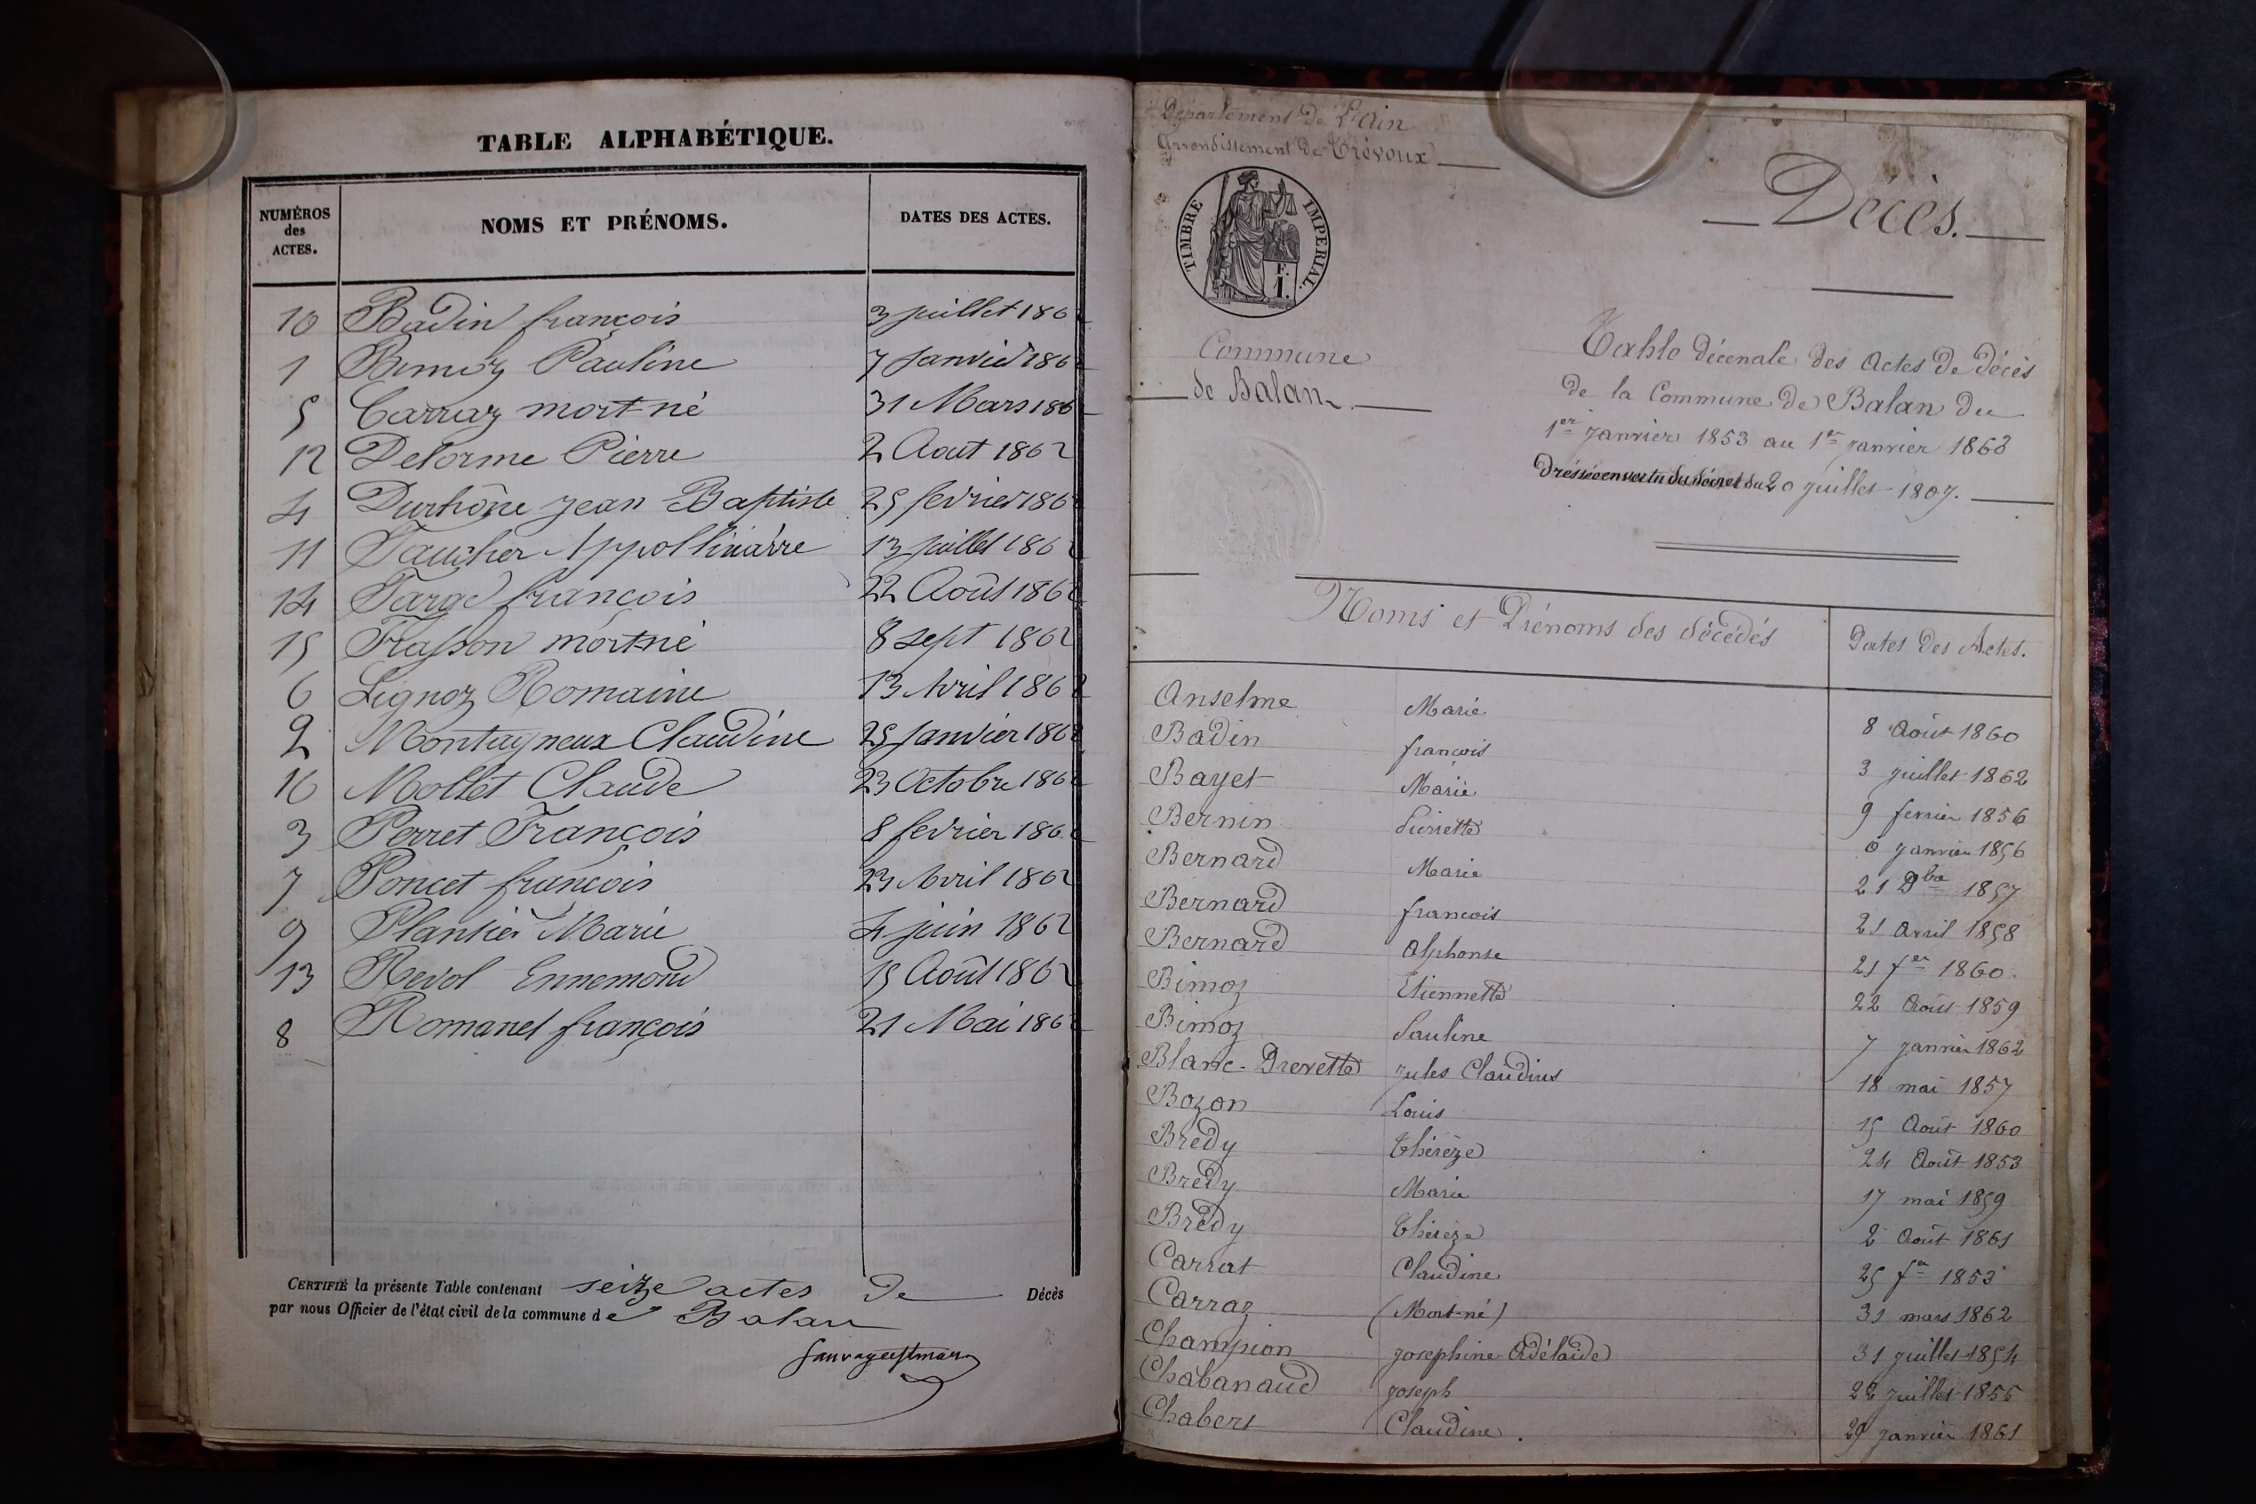 TABLE ALPHABÉTIQUE.
NUMÉROS des ACTES. NOMS ET PRÉNOMS. DATES DES ACTES.
10 Badin françois 3 juillet 1862
1 Bimoz Pauline 7 Janvier 1862
5 Carraz mort-né 31 Mars 1862
12 Delorme Pierre 2 Aout 1862
4 Durhône jean Baptiste 25 fevrier 1862
11 Faucher Appollinairre 13 juillet 1862
14 Farge françois 22 Août 1862
15 Frasson mort-né 8 sept 1862
6 Lignoz Romaine 13 Avril 1862
2 Montagneux Claudine 25 Janvier 1862
16 Mollet Claude 23 Octobre 1862
3 Perret François 8 fevrier 1862
7 Poncet françois 23 Avril 1862
9 Plantier Marie 4 juin 1862
13 Revol Ennemond 15 Août 1862
8 Romanet françois 21 Mai 1862
CERTIFIÉ la présente Table contenant seize actes de Décès
par nous Officier de l'état civil de la commune de Balan
Département de L'Ain
Arrondissement de Trévoux
TIMBRE IMPÉRIAL.
F. 1.
Commune
de Balan
Décès.
Table décenale des Actes de décès
de la Commune de Balan du
1er janvier 1853 au 1er janvier 1863
Dressée en vertu du décret du 20 juillet 1807.
Noms et Prénoms des décédés Dates des Actes.
Anselme Marie 8 Août 1860
Badin françois 3 juillet 1862
Bayet Marie 9 fevrier 1856
Bernin Pierrette 6 janvier 1856
Bernard Marie 21 9bre 1857
Bernard francois 21 avril 1858
Bernard Alphonse 21 fer 1860
Bimoz Etiennette 22 Août 1859
Bimoz Pauline 7 janvier 1862
Blanc-Drevette jules Claudius 18 mai 1857
Bozon Louis 15 Août 1860
Brédy Thérèze 24 Août 1853
Brédy Marie 17 mai 1859
Brédy Thérèze 2 Août 1861
Carrat Claudine 25 fer 1853
Carraz (Mort-né) 31 mars 1862
Champion josephine Adélaide 31 juillet 1854
Chabanaud joseph 22 juillet 1855
Chabert Claudine. 29 janvier 1861